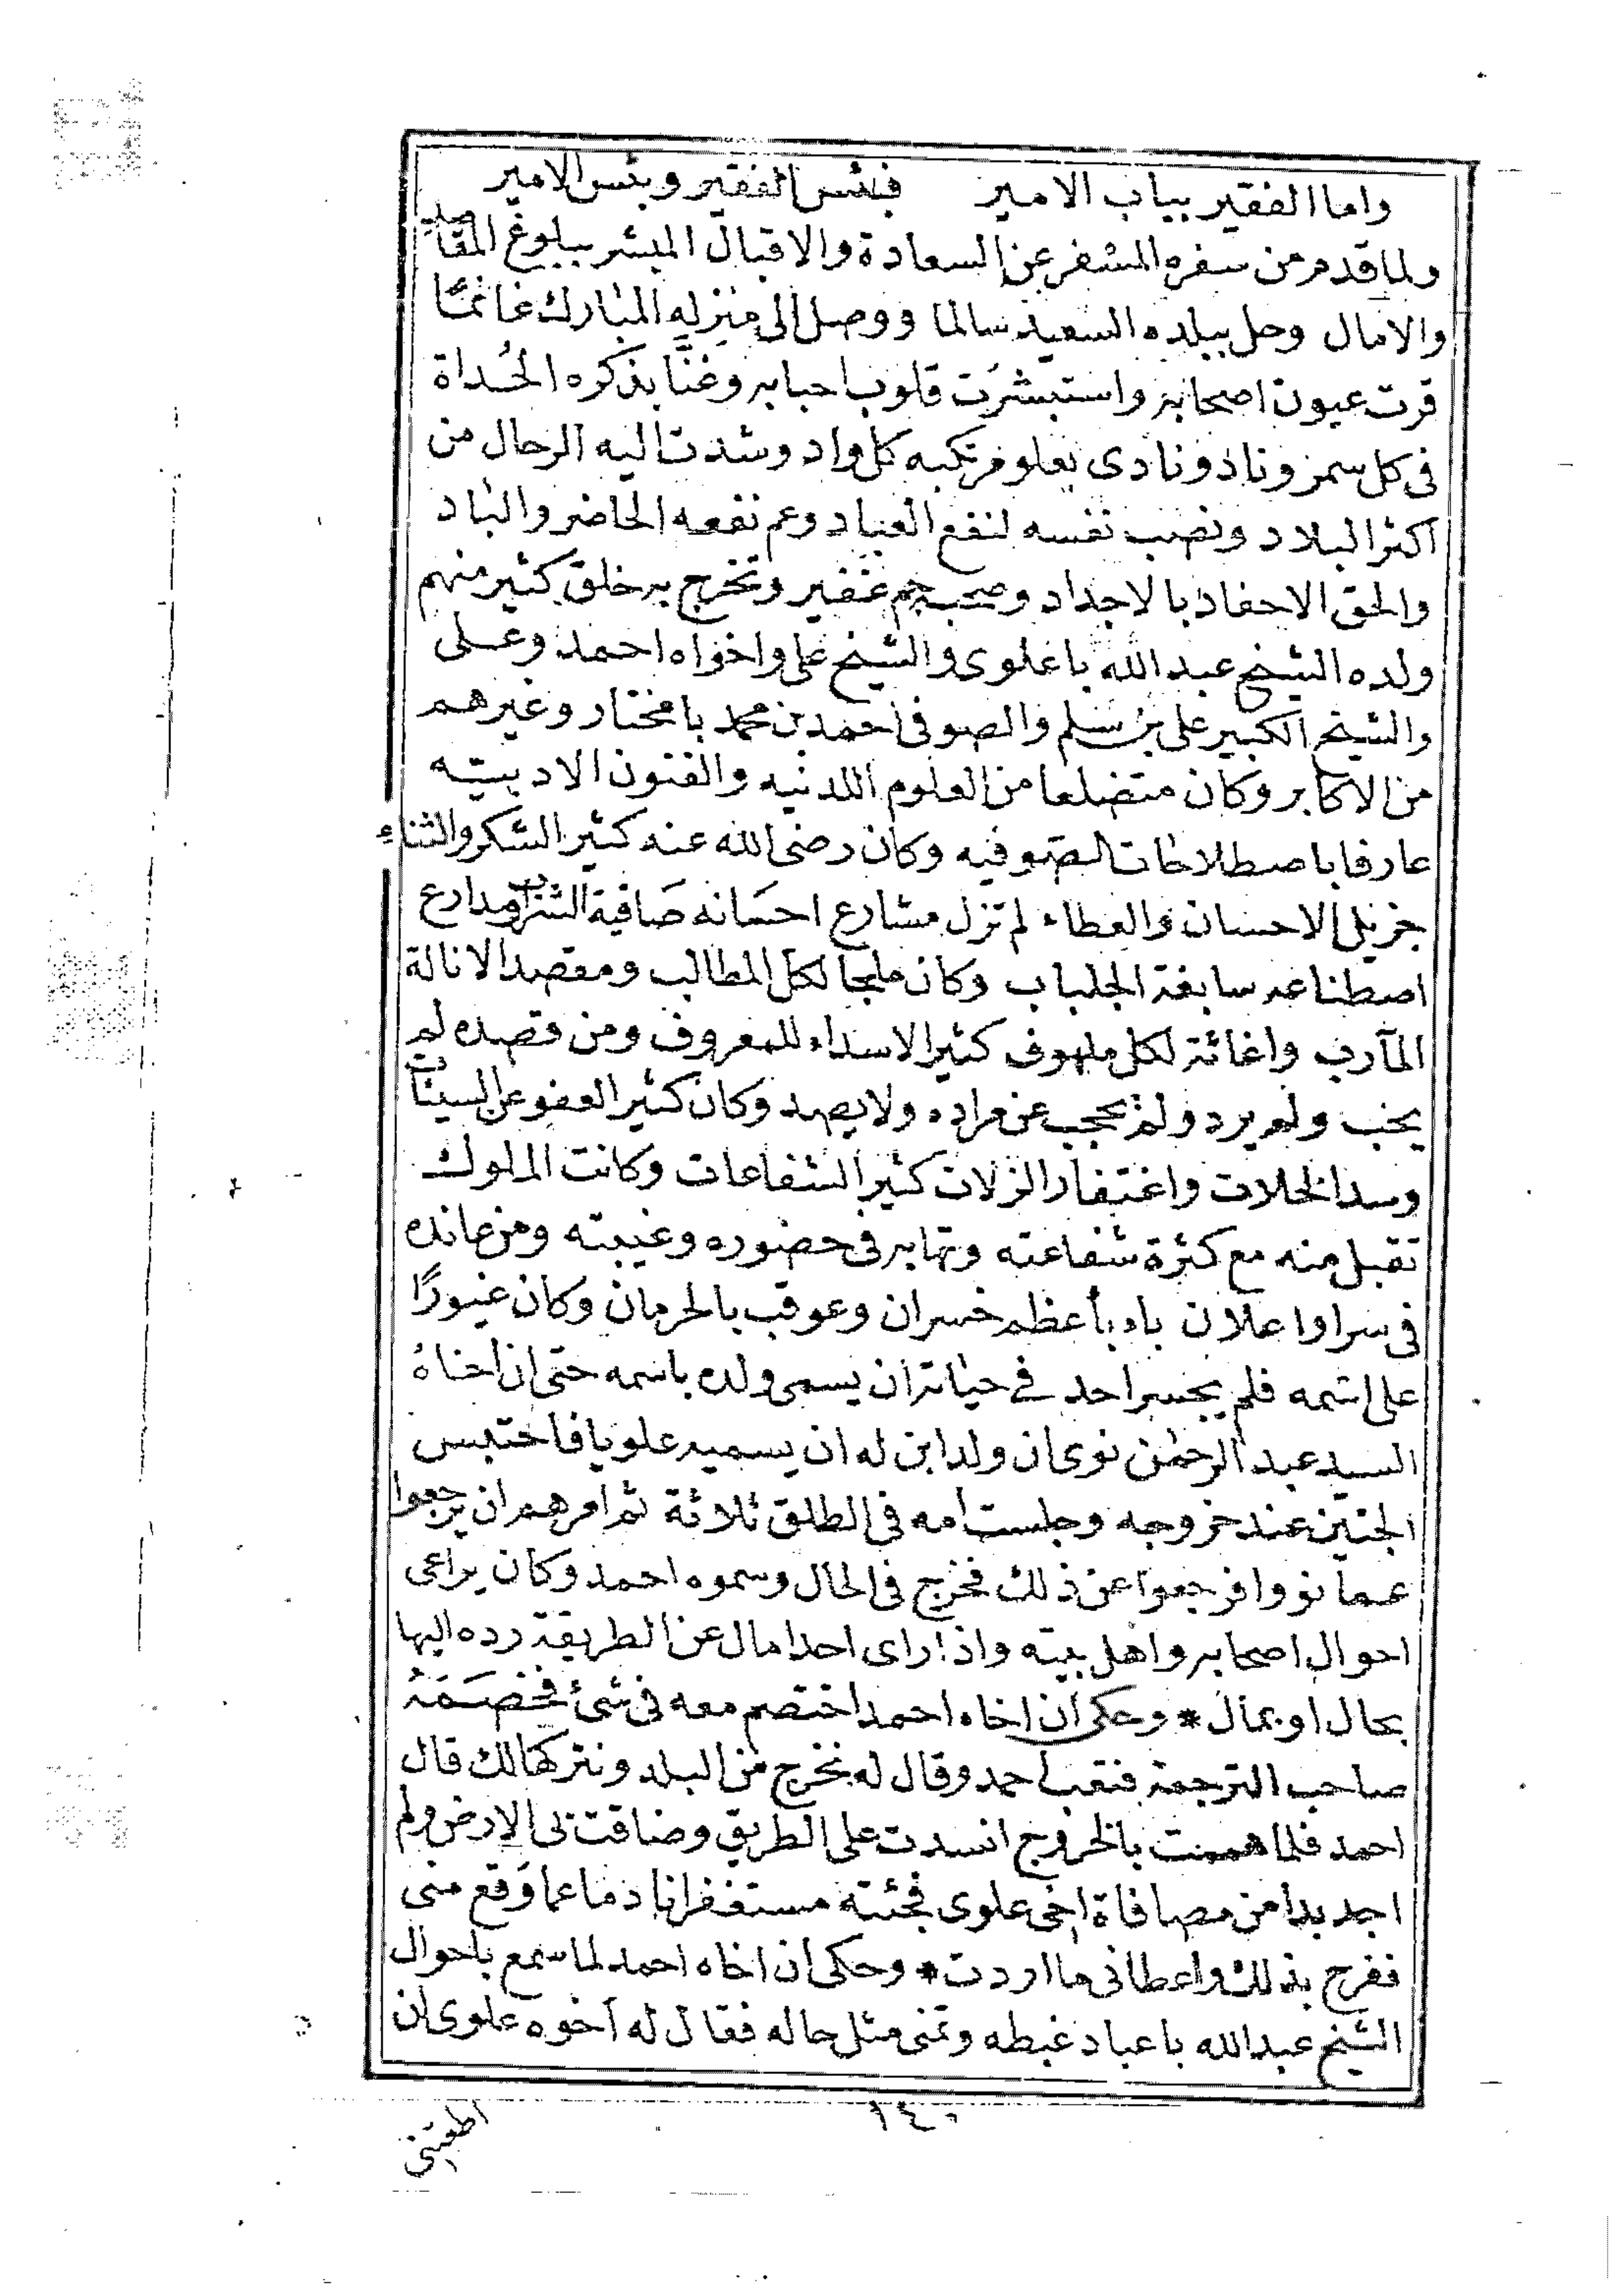 واما الفقير بباب الامير فبئس الفقير وبئس الامير
ولما قدم من سفره المسفر عن السعادة والاقبال المبشر ببلوغ المقاصد
والامال وحل ببلده السعيد سالما ووصل الى منزله المبارك غانمًا
قرت عيون اصحابه واستبشرت قلوب احبابه وغنّا بذكره الحُداة
فى كل سمر وناد ونادى بعلو مرتكبه كل واد وشدت اليه الرحال من
اكثر البلاد ونصب نفسه لنفع العباد وعم نفعه الحاضر والباد
والحق الاحفاد بالاجداد وصحبه جم غفير وتخرج به خلق كثير منهم
ولده الشيخ عبد الله باعلوى والشيخ على واخواه احمد وعلى
والشيخ الكبير على بن سلم والصوفى احمد بن محمد با مختار وغيرهم
من الاكابر وكان متضلعا من العلوم اللدنيه والفنون الادبيته
عارفا باصطلاحات الصوفيه وكان رضى الله عنه كثير الشكر والثناء
جزيل الاحسان والعطاء لم تزل مشارع احسانه صَافية الشراب ومدارع
اصطناعه سابغة الجلباب وكان ملجا لكل المطالب ومقصدا لانالة
المآرب واغاثة لكل ملهوف كثير الاسداء للمعروف ومن قصده لم
يخب ولم يرد ولم يحجب عن مراده ولا يصد وكان كثير العفو عن السيئات
وسد الخلات واغتفار الزلات كثير الشفاعات وكانت الملوك
تقبل منه مع كثرة شفاعته وتهابه فى حضوره وغيبته ومن عانده
فى سر او اعلان باد بأعظم خسران وعوقب بالحرمان وكان غيورًا
على اسمه فلم يجسر احد في حياته ان يسمى ولده باسمه حتى ان اخاهُ
السيد عبد الرحمن نوى ان ولد ابن له ان يسميه علويا فاحتبس
الجنين عند خروجه وجلست امه فى الطلق ثلاثة ثم امرهم ان يرجعوا
عما نووا فرجعوا عن ذلك فخرج فى الحال وسموه احمد وكان يراعى
احوال اصحابه واهل بيته واذا راى احدا مال عن الطريقة رده اليها
بحال او بمال * وحكى ان اخاه احمد اختصم معه فى شئ فخصَمَهُ
صاحب الترجمة فتعب احمد وقال له نخرج من البلد ونتركها لك قال
احمد فلما هممت بالخروج انسدت على الطريق وضاقت بى الارض ولم
اجد بدا من مصافاة اخى علوى فجئته مستغفرا نادما عما وقع منى
ففرح بذلك واعطانى ما اردت * وحكى ان اخاه احمد لما سمع باحوال
الشيخ عبد الله با عباد غبطه وتمنى مثل حاله فقال له اخوه علوى ان
١٤٠
اطعتنى